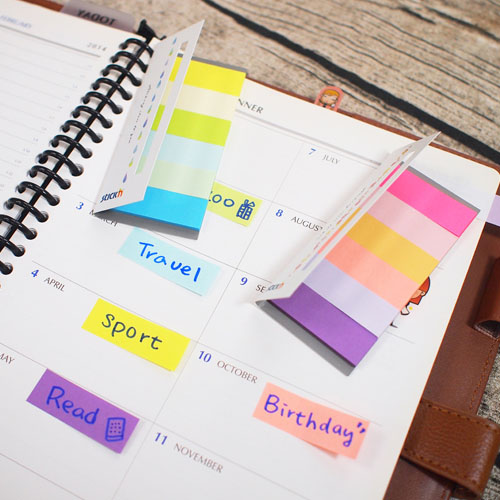 TODAY
FEBRUARY
2014
NNER
7 JULY
stick'n
zoo
3 MARCH
8 AUGUST
Travel
4 APRIL
9 SE
Sport
10 OCTOBER
MAY
Read
Birthday
11 NOVEMBER